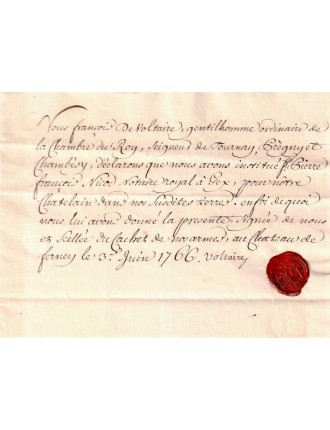 Nous françois De Voltaire, gentilhomme ordinaire de
la Chambre du Roy, Seigneur de Tournay, Prégny et
Chambésy, déclarons que nous avons institué Sr. Pierre
françois Nicod Notaire royal à Gex, pour nôtre
Chatelain dans nos susdites terres. en foi de quoi
nous lui avons donné la presente signée de nous
et Scellée du Cachet de nos armes, au Chateau de
ferney le 3e. Juin 1766. Voltaire